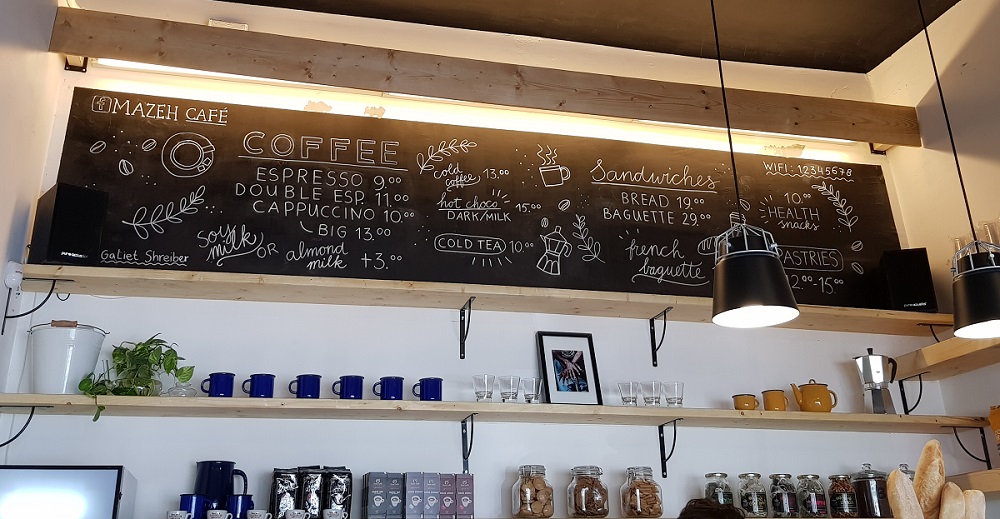 f MAZEH CAFÉ
COFFEE
ESPRESSO 9.00
DOUBLE ESP. 11.00
CAPPUCCINO 10.00
BIG 13.00
soy milk OR almond milk +3.00
Galiet Shreiber
cold coffee 13.00
hot choco 15.00
DARK/MILK
COLD TEA 10.00
Sandwiches
BREAD 19.00
BAGUETTE 29.00
french
baguette
WIFI: 12345678
10.00
HEALTH
snacks
PASTRIES
2.00-15.00